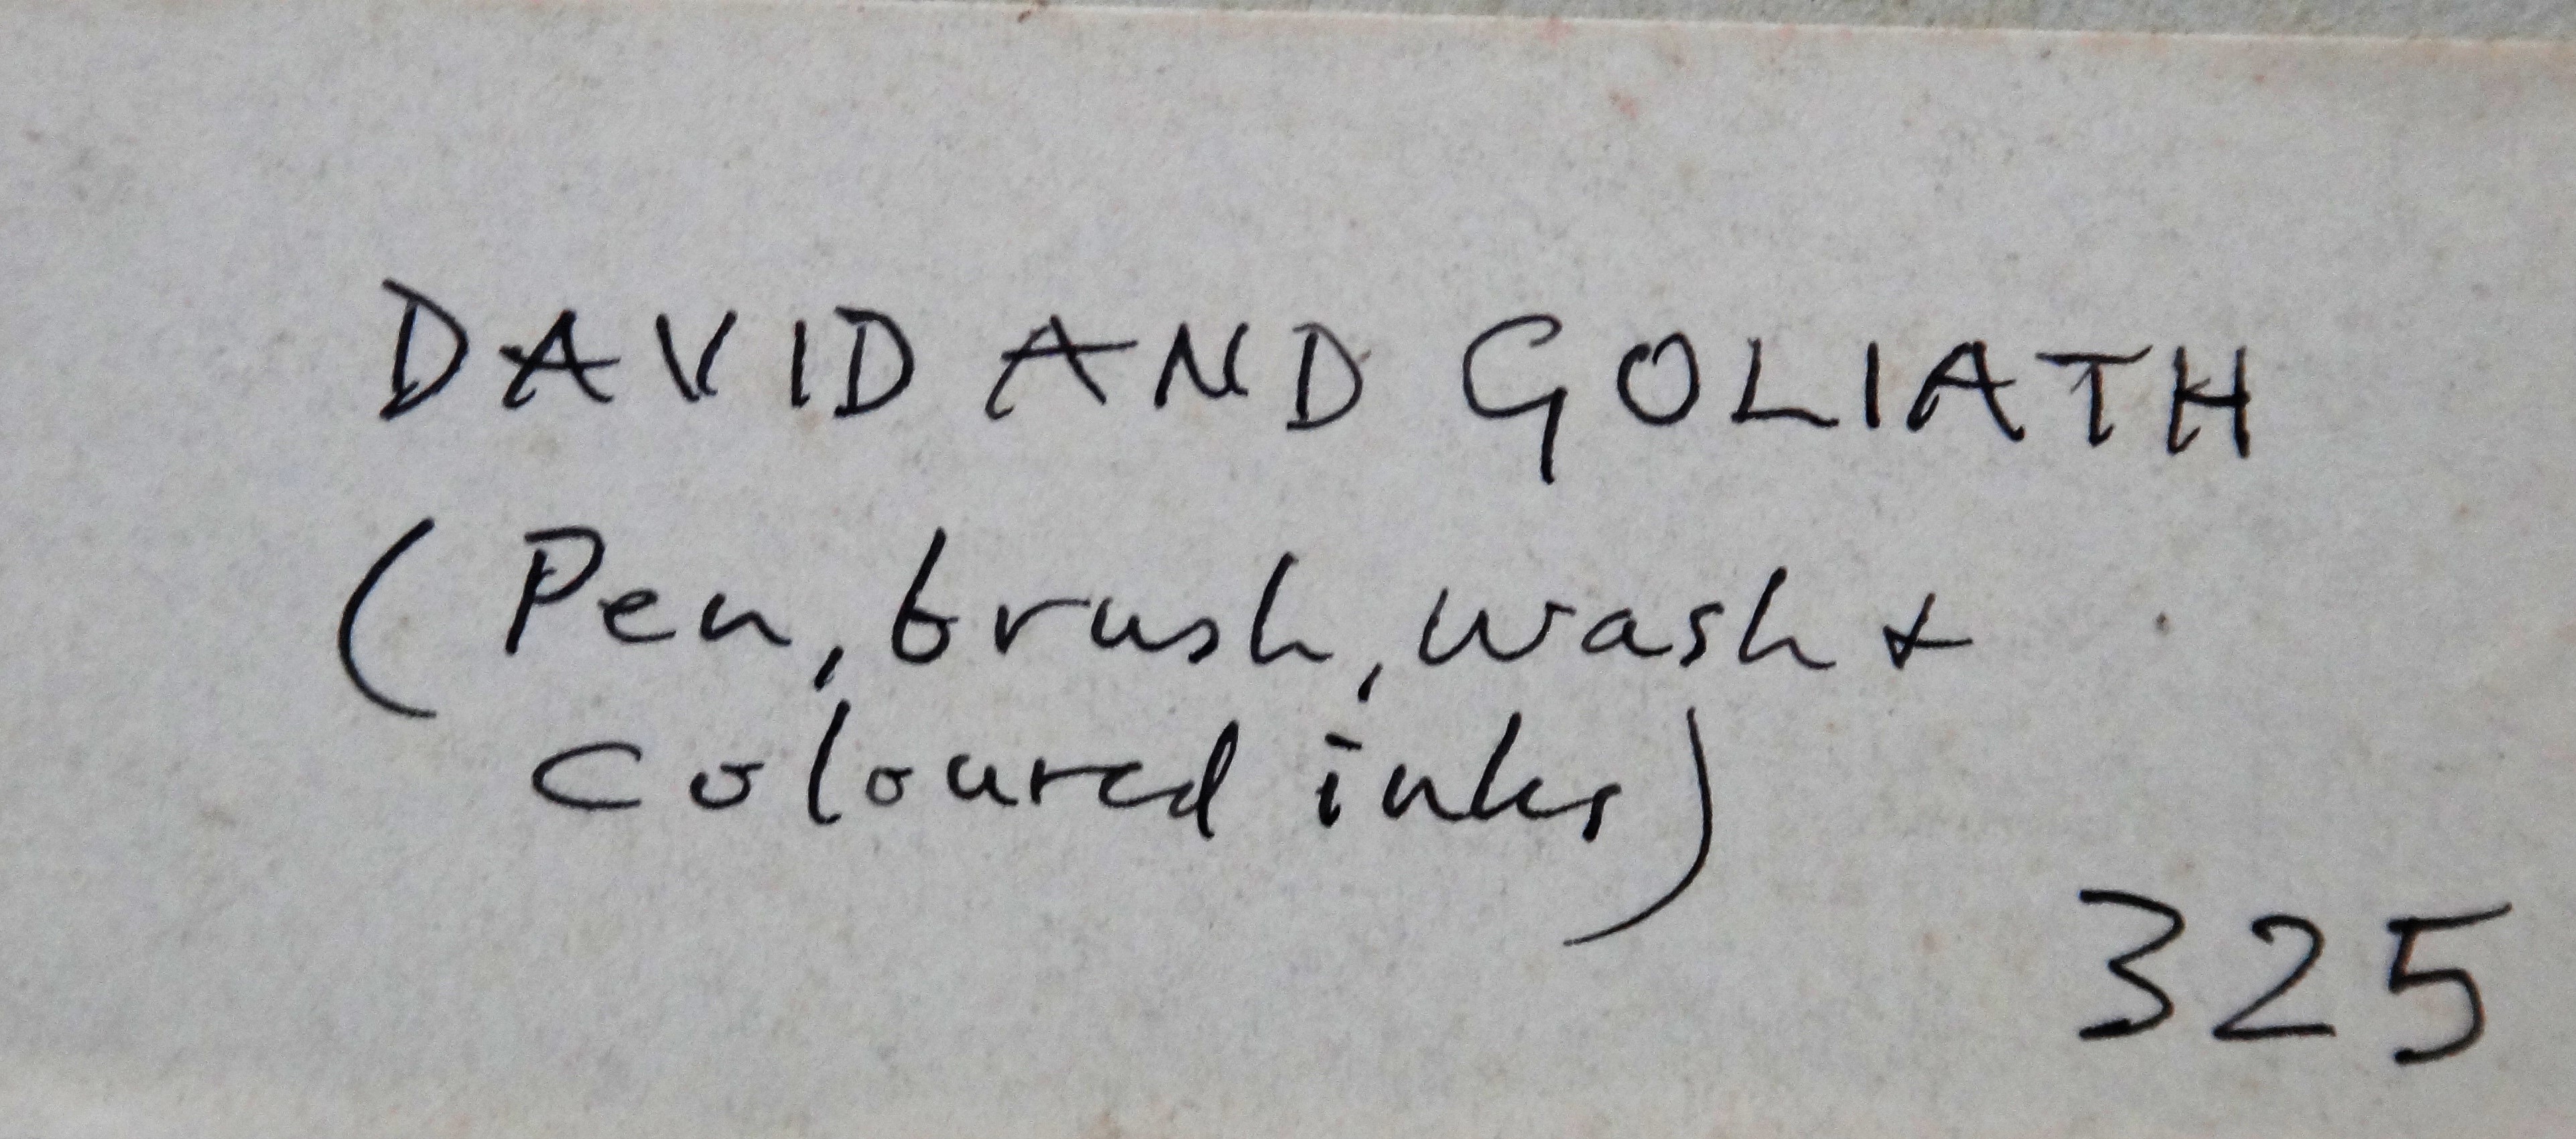 DAVID AND GOLIATH
(Pen, brush, wash +
coloured inks)
325